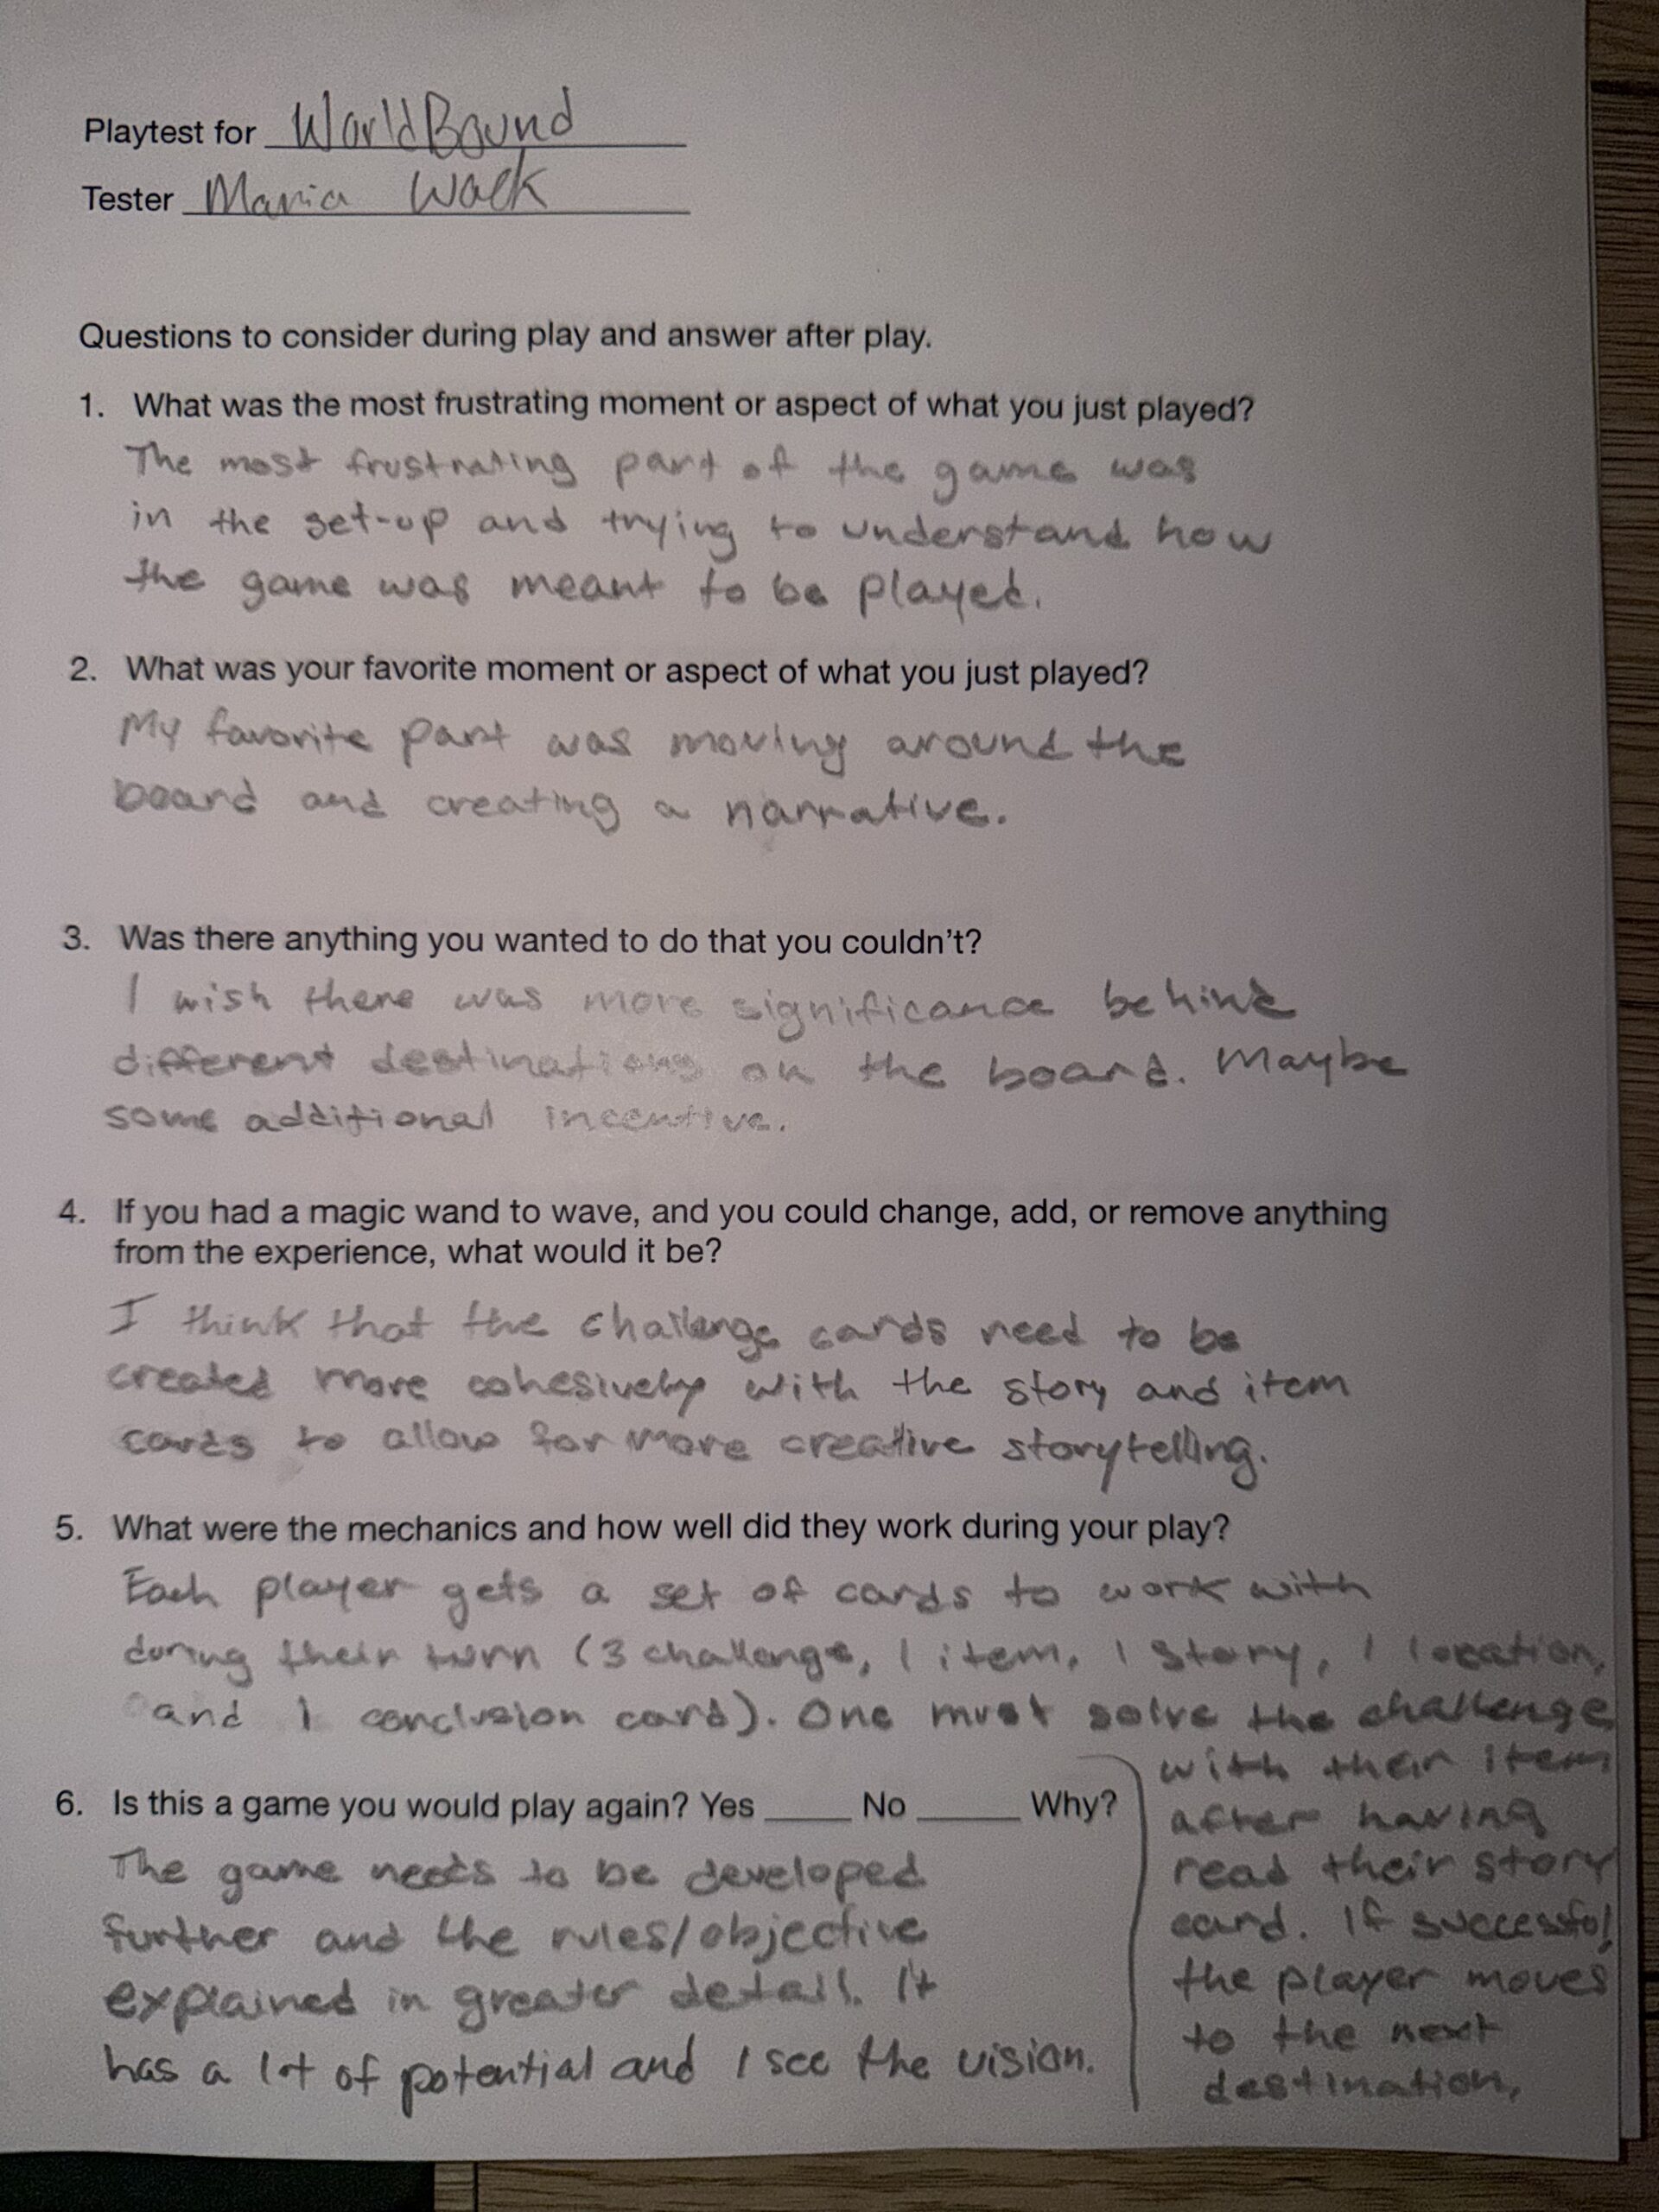 Playtest for WorldBound
Tester Maria Walk
Questions to consider during play and answer after play.
1. What was the most frustrating moment or aspect of what you just played?
The most frustrating part of the game was
in the set-up and trying to understand how
the game was meant to be played.
2. What was your favorite moment or aspect of what you just played?
My favorite part was moving around the
board and creating a narrative.
3. Was there anything you wanted to do that you couldn't?
I wish there was more significance behind
different destinations on the board. Maybe
some additional incentive.
4. If you had a magic wand to wave, and you could change, add, or remove anything
from the experience, what would it be?
I think that the challenge cards need to be
created more cohesively with the story and item
cards to allow for more creative storytelling.
5. What were the mechanics and how well did they work during your play?
Each player gets a set of cards to work with
during their turn (3 challenge, 1 item, 1 story, 1 location,
and 1 conclusion card). One must solve the challenge
with their item
after having
read their story
card. If successful,
the player moves
to the next
destination.
6. Is this a game you would play again? Yes _____ No ______ Why?
The game needs to be developed
further and the rules/objective
explained in greater detail. It
has a lot of potential and I see the vision.